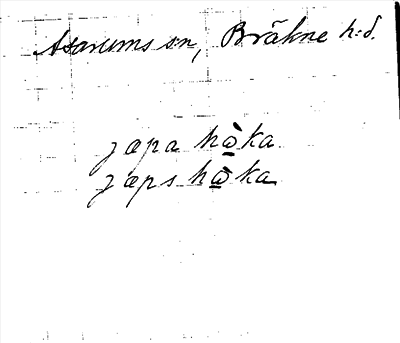 Asarums sn, Bräkne h:d.
japa hὼ̲ka
japs hὼ̲ka